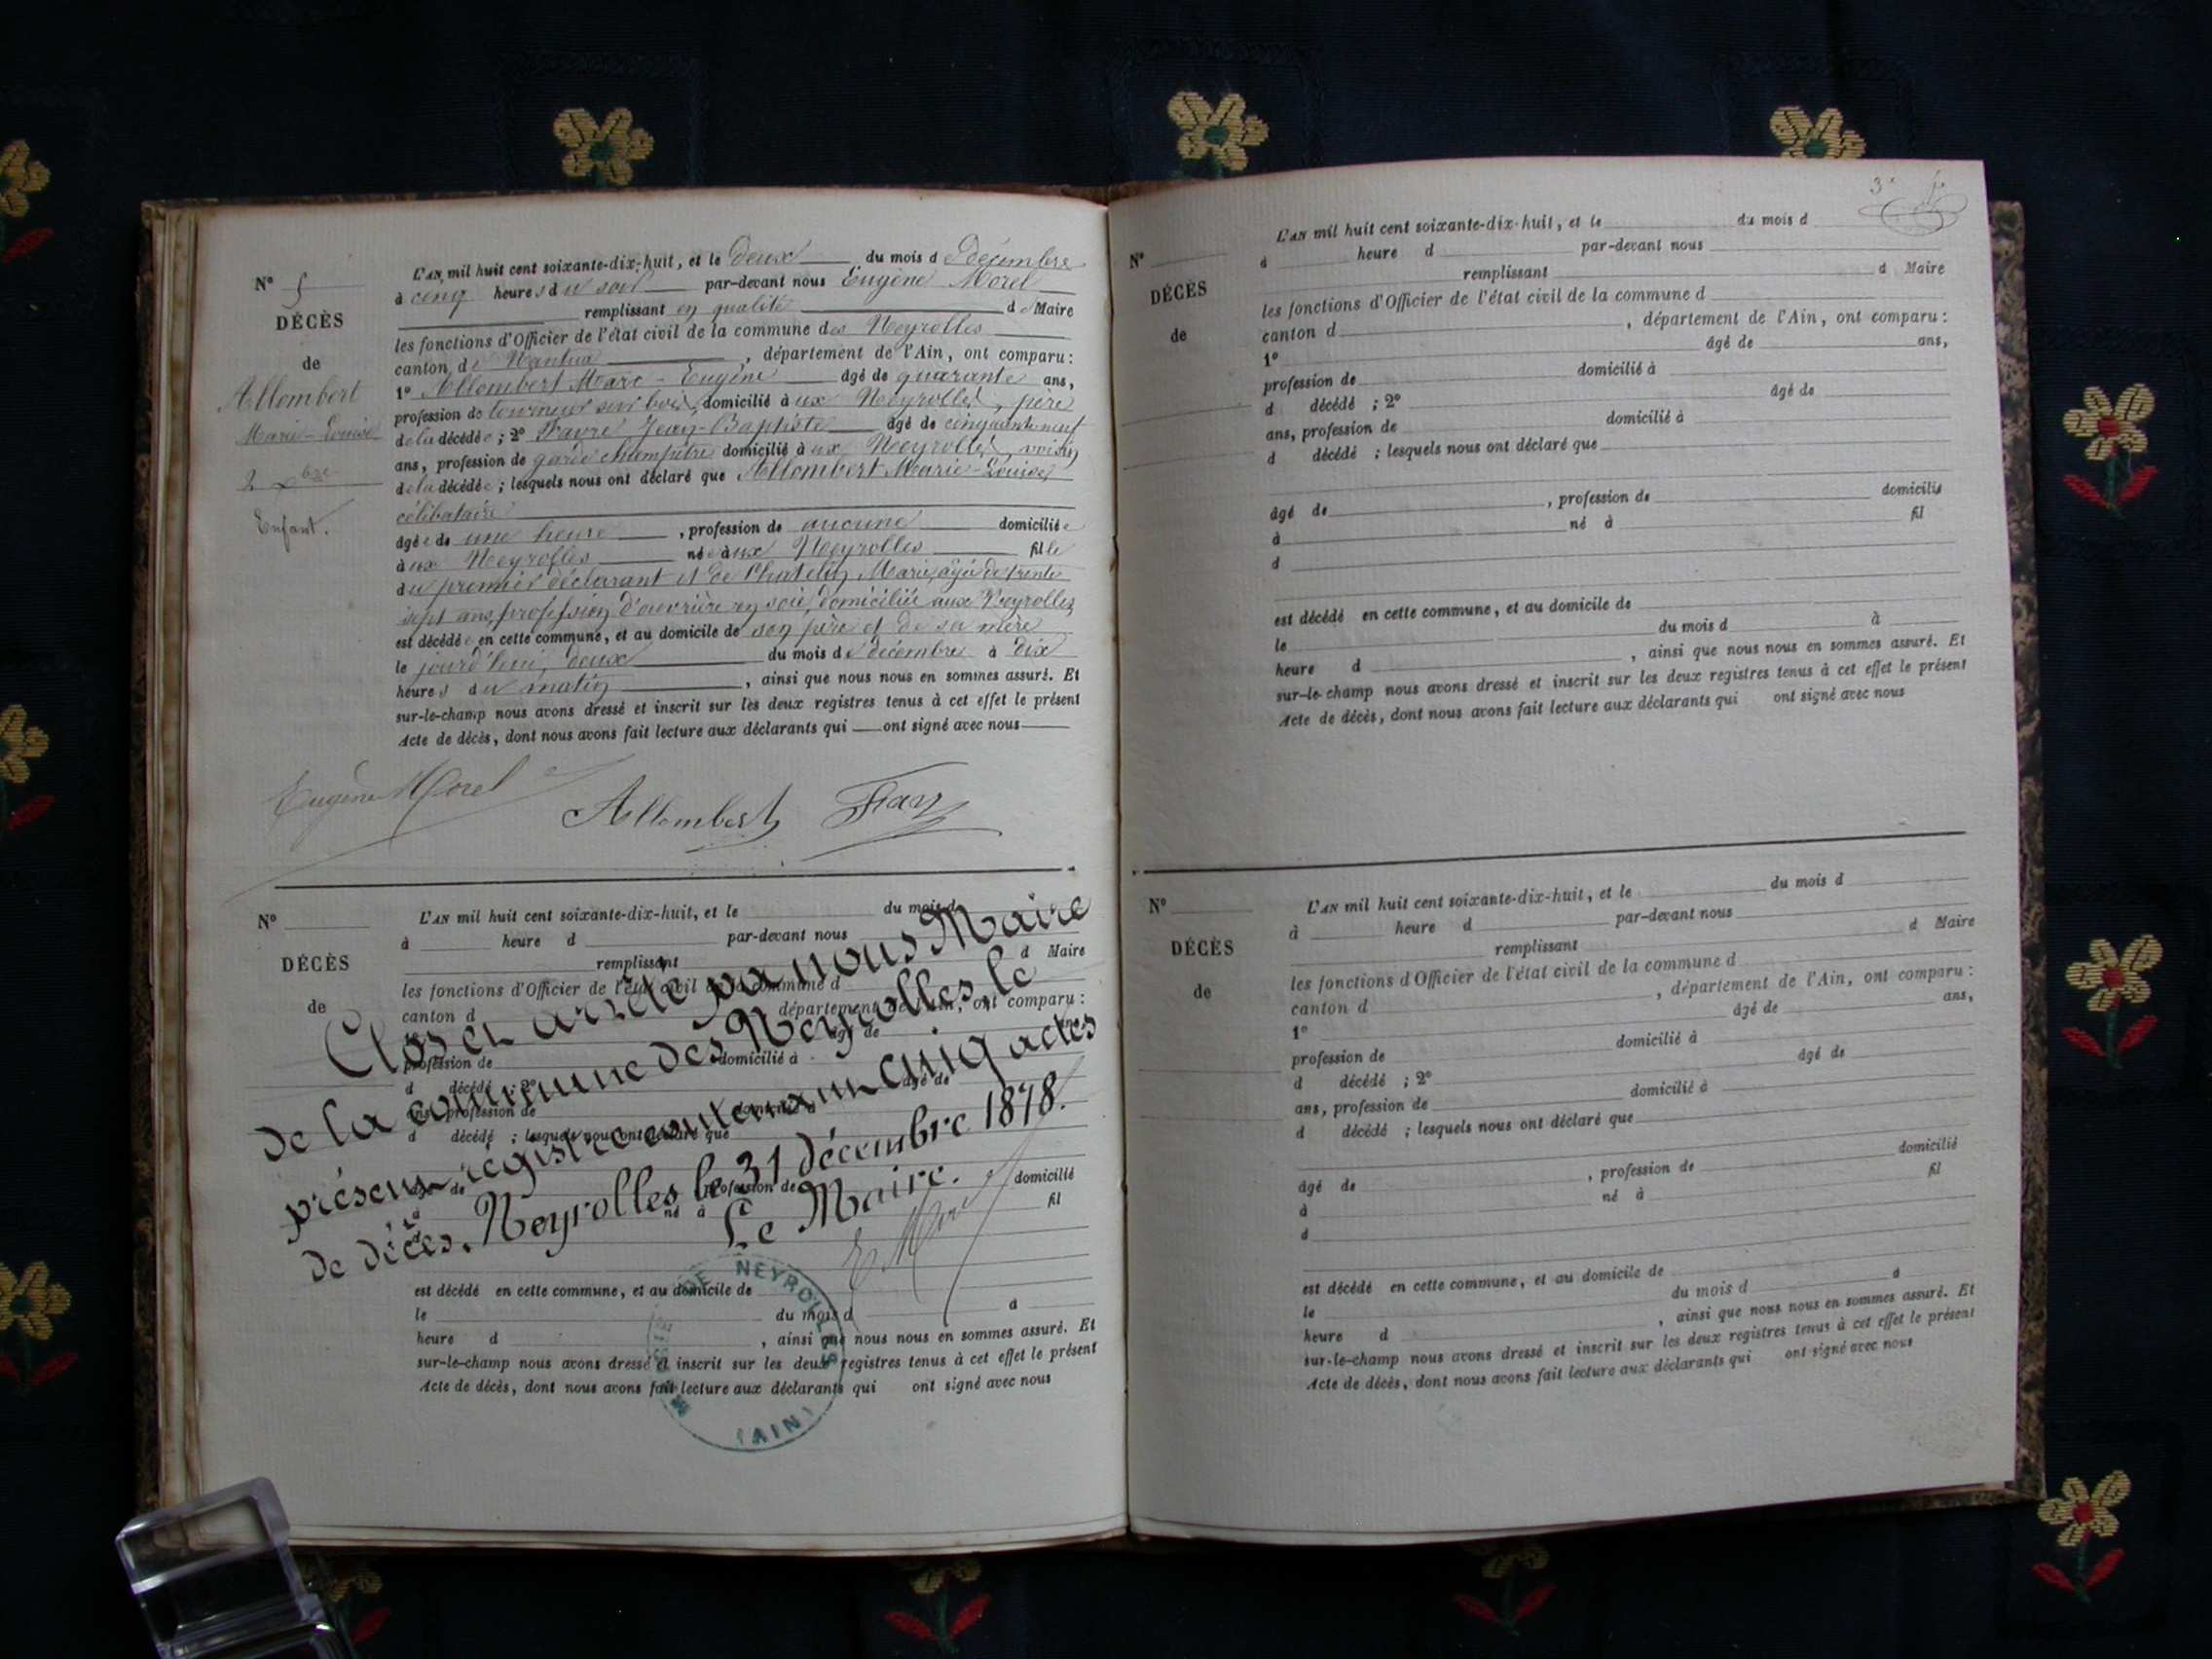 N° 5
DÉCÈS
de
Allombert
Marie-Louise
2 Xbre
Enfant.
L'AN mil huit cent soixante-dix-huit, et le deux du mois de Décembre
à cinq heures du soir par-devant nous Eugène Morel
remplissant en qualité de Maire
les fonctions d'Officier de l'état civil de la commune des Neyrolles
canton de Nantua, département de l'Ain, ont comparu :
1° Allombert Marc-Eugène âgé de quarante ans,
profession de tourneur sur bois, domicilié à ux Neyrolles, père
de la décédée ; 2° Favre Jean-Baptiste âgé de cinquante-neuf
ans, profession de garde champêtre domicilié à ux Neyrolles, voisin
de la décédée ; lesquels nous ont déclaré que Allombert Marie-Louise,
célibataire
âgée de une heure, profession de aucune domiciliée
à ux Neyrolles née à ux Neyrolles fille
du premier déclarant et de Chatelin Marie, âgée de trente
sept ans, profession d'ouvrière en soie, domiciliée aux Neyrolles
est décédée en cette commune, et au domicile de son père et de sa mère
le jourd'hui, deux du mois de décembre à dix
heures du matin, ainsi que nous nous en sommes assuré. Et
sur-le-champ nous avons dressé et inscrit sur les deux registres tenus à cet effet le présent
Acte de décès, dont nous avons fait lecture aux déclarants qui ont signé avec nous
Eugène Morel Allombert Favre
N°
DÉCÈS
de
L'AN mil huit cent soixante-dix-huit, et le du mois d
à heure d par-devant nous
remplissant d Maire
les fonctions d'Officier de l'état civil de la commune d
canton d département de l'Ain, ont comparu :
1° âgé de ans,
profession de domicilié à
d décédé ; 2° âgé de
ans, profession de domicilié à
d décédé ; lesquels nous ont déclaré que
âgé de profession de domicilié
né à fil
d
Clos et arrêté par nous Maire
de la commune des Neyrolles le
présent registre contenant cinq actes
de décès. Neyrolles le 31 décembre 1878.
Le Maire.
E. Morel
est décédé en cette commune, et au domicile de
le du mois d à
heure d , ainsi que nous nous en sommes assuré. Et
sur-le-champ nous avons dressé et inscrit sur les deux registres tenus à cet effet le présent
Acte de décès, dont nous avons fait lecture aux déclarants qui ont signé avec nous
DE NEYROLLES
(AIN)
3e
N°
DÉCÈS
de
L'AN mil huit cent soixante-dix-huit, et le du mois d
à heure d par-devant nous
remplissant d Maire
les fonctions d'Officier de l'état civil de la commune d
canton d , département de l'Ain, ont comparu :
1° âgé de ans,
profession de domicilié à
d décédé ; 2° âgé de
ans, profession de domicilié à
d décédé ; lesquels nous ont déclaré que
âgé de , profession de domicilié
à né à fil
d
est décédé en cette commune, et au domicile de
le du mois d à
heure d , ainsi que nous nous en sommes assuré. Et
sur-le-champ nous avons dressé et inscrit sur les deux registres tenus à cet effet le présent
Acte de décès, dont nous avons fait lecture aux déclarants qui ont signé avec nous
N°
DÉCÈS
de
L'AN mil huit cent soixante-dix-huit, et le du mois d
à heure d par-devant nous
remplissant d Maire
les fonctions d'Officier de l'état civil de la commune d
canton d , département de l'Ain, ont comparu :
1° âgé de ans,
profession de domicilié à
d décédé ; 2° âgé de
ans, profession de domicilié à
d décédé ; lesquels nous ont déclaré que
âgé de , profession de domicilié
à né à fil
d
est décédé en cette commune, et au domicile de
le du mois d à
heure d , ainsi que nous nous en sommes assuré. Et
sur-le-champ nous avons dressé et inscrit sur les deux registres tenus à cet effet le présent
Acte de décès, dont nous avons fait lecture aux déclarants qui ont signé avec nous